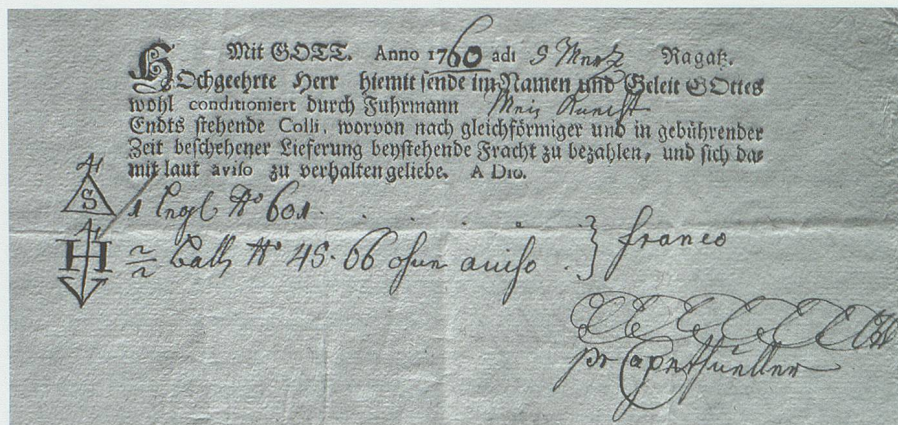 Mit GOTT. Anno 1760 adi 9 Mertz Ragatz.
HOchgeehrte Herr hiemit sende im Namen und Geleit GOttes
wohl conditioniert durch Fuhrmann
Endts stehende Colli, worvon nach gleichförmiger und in gebührender
Zeit beschehener Lieferung beystehende Fracht zu bezahlen, und sich da-
mit laut aviso zu verhalten geliebe. A Dio.
4
S
1 No 601.
H
2/2 Ball No 45. 66 ohne aviso } franco
pr